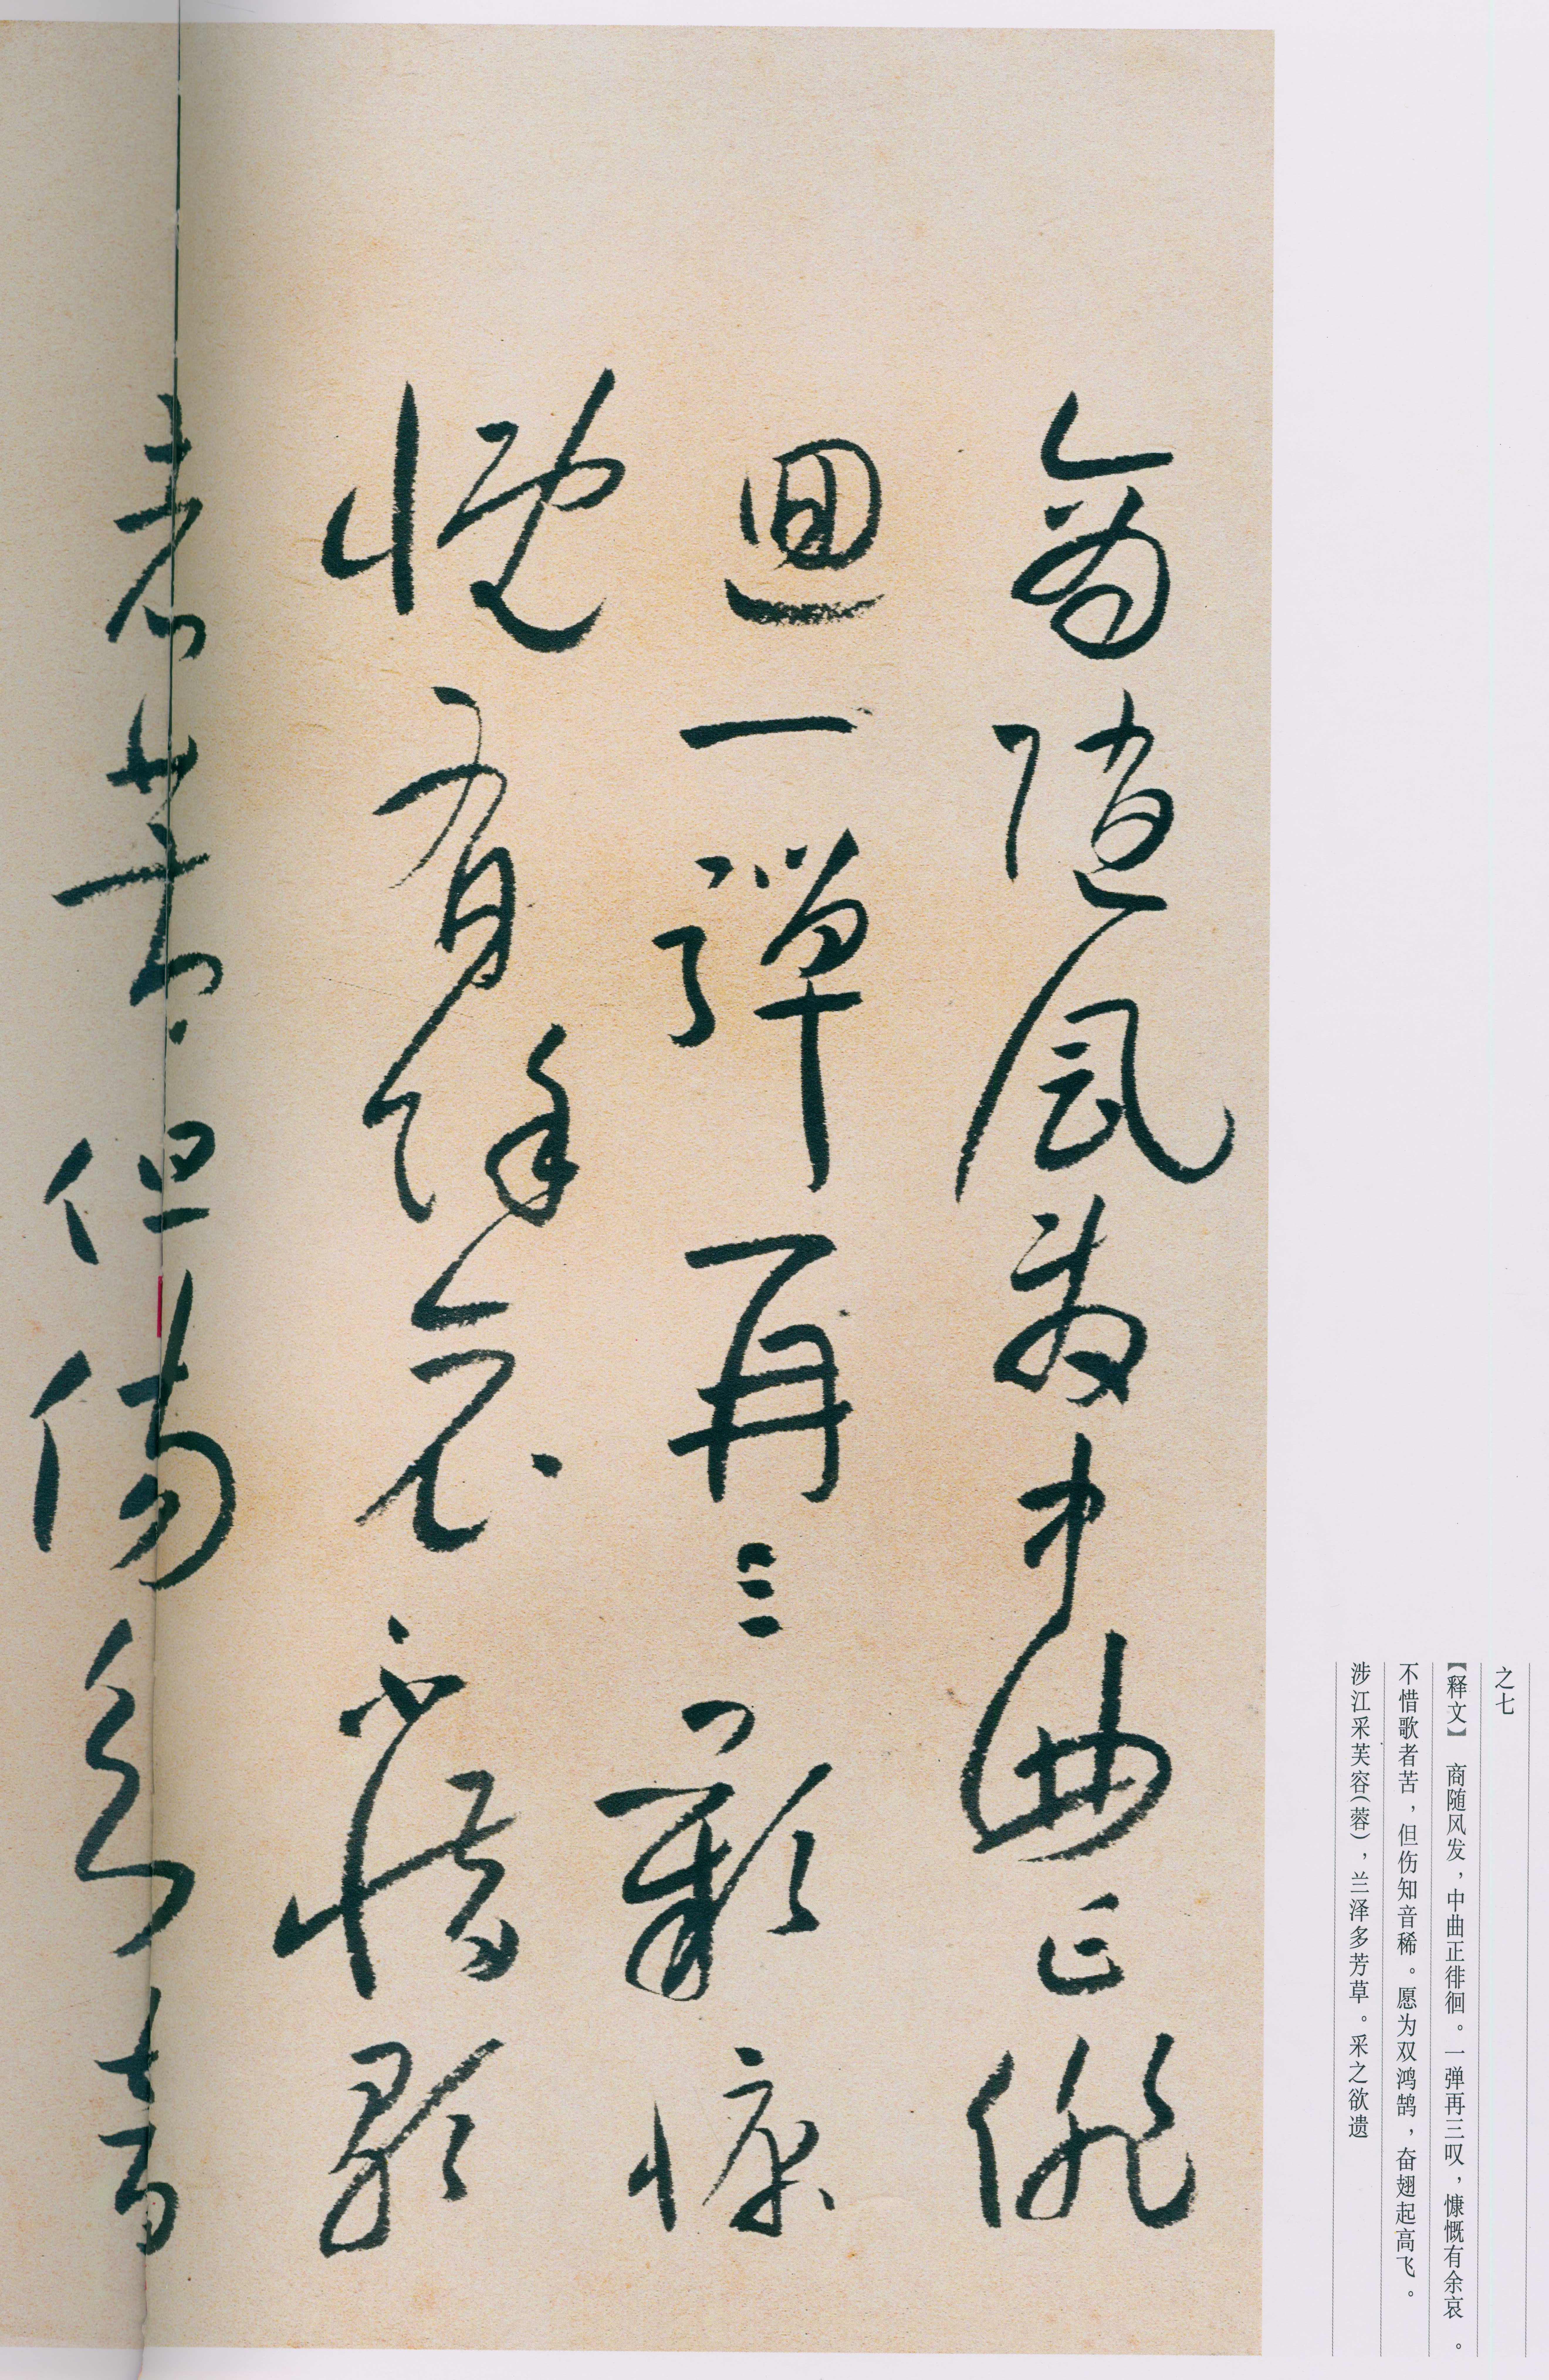 之七
【释文】 商随风发，中曲正徘徊。一弹再三叹，慷慨有余哀。
不惜歌者苦，但伤知音稀。愿为双鸿鹄，奋翅起高飞。
涉江采芙容（蓉），兰泽多芳草。采之欲遗
商隨風發中曲正徘
迴一彈再三歎慷
慨有餘哀不惜歌
者苦但傷知音